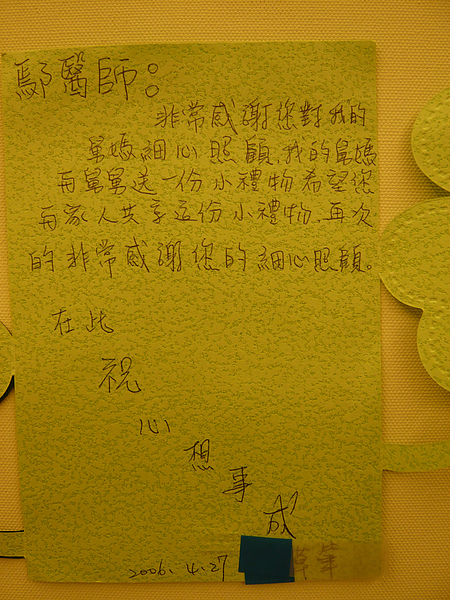 鄢醫師:
非常感謝您對我的
舅媽細心照顧,我的舅媽
舅舅送一份小禮物希望您
家人共享這份小禮物,再次
的非常感謝您的細心照顧。
在此
祝
心
想
事
成
2006.4.27 筆